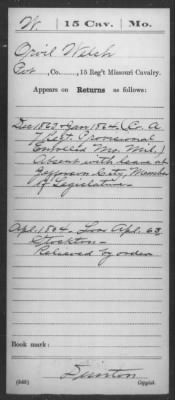 W. | 15 Cav. | Mo.
Orvil Welch
Pvt, Co. , 15 Reg't Missouri Cavalry.
Appears on Returns as follows:
Dec. 1863 & Jan 1864 (Co. A
7 Regt Provisional
Enrolled Mo. Mil.)
Absent with leave at
Jefferson City, Member
of Legislature
Apl. 1864. Apl. 63
Stockton
Relieved by order
Book mark:
(546)
Copyist.